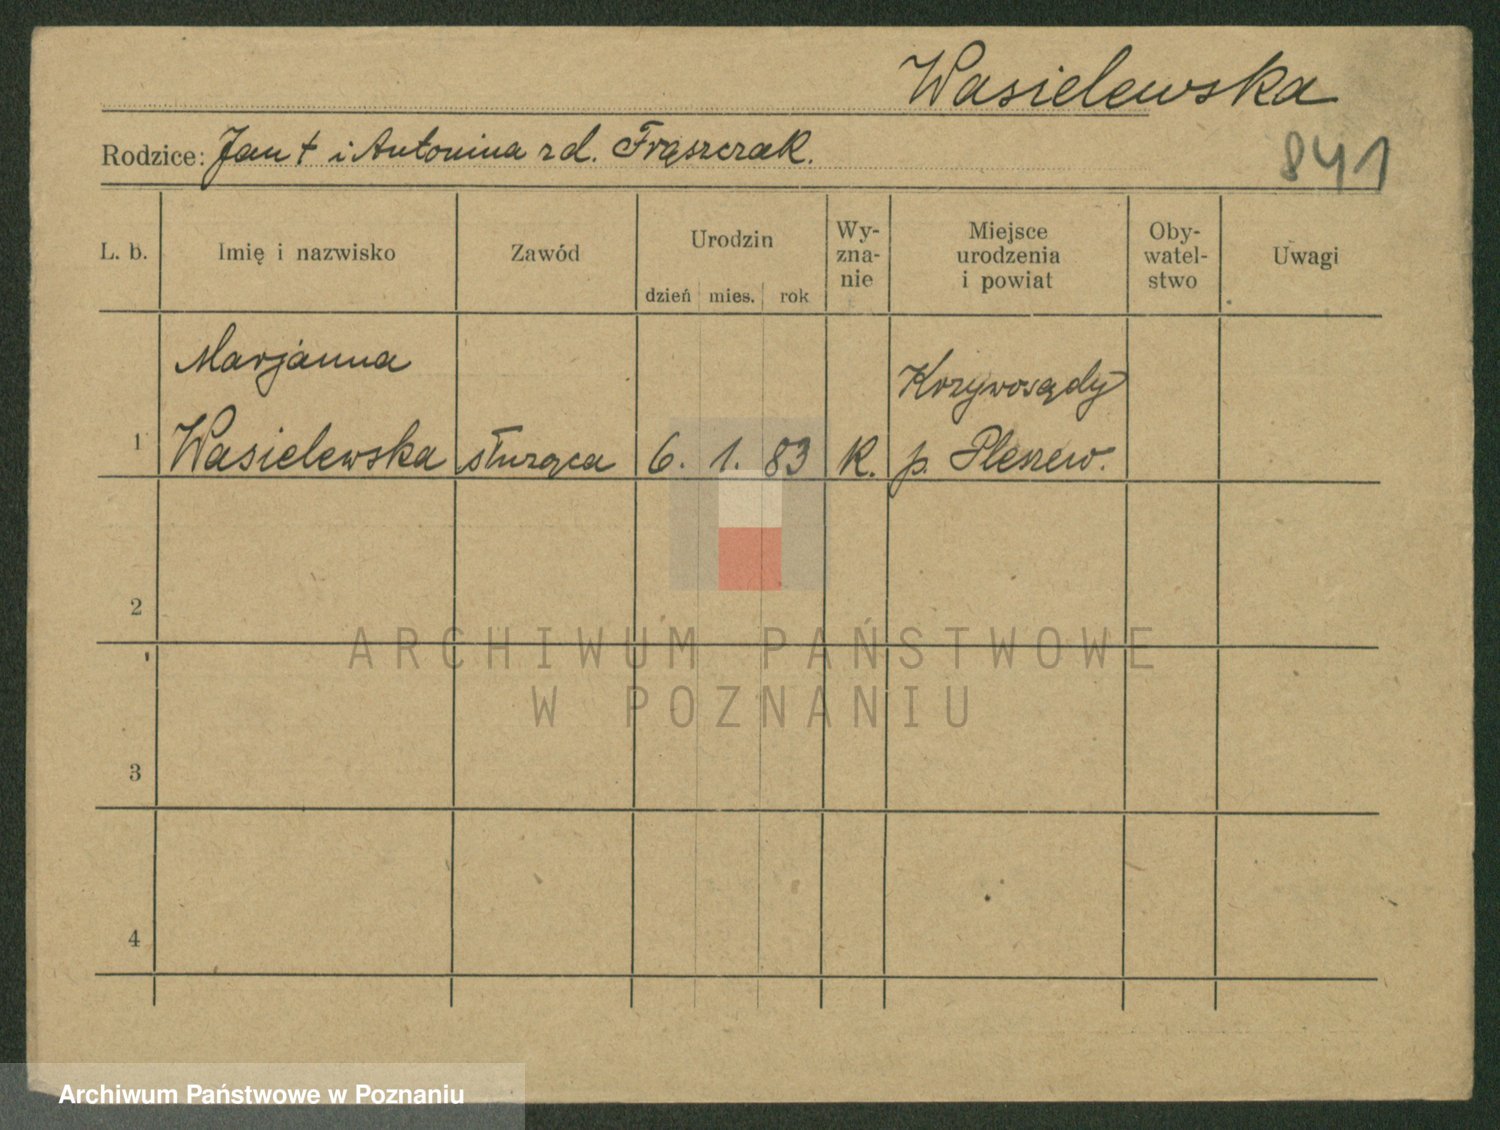 Wasielewska
Rodzice: Jan † i Antonina zd. Frąszczak.
841
L. b. Imię i nazwisko Zawód Urodzin dzień mies. rok Wy-zna-nie Miejsce urodzenia i powiat Oby-watel-stwo Uwagi
Marjanna Krzywosądy
1 Wasielewska służąca 6. 1. 83 k. p. Pleszew.
2
ARCHIWUM PAŃSTWOWE
W POZNANIU
3
4
Archiwum Państwowe w Poznaniu